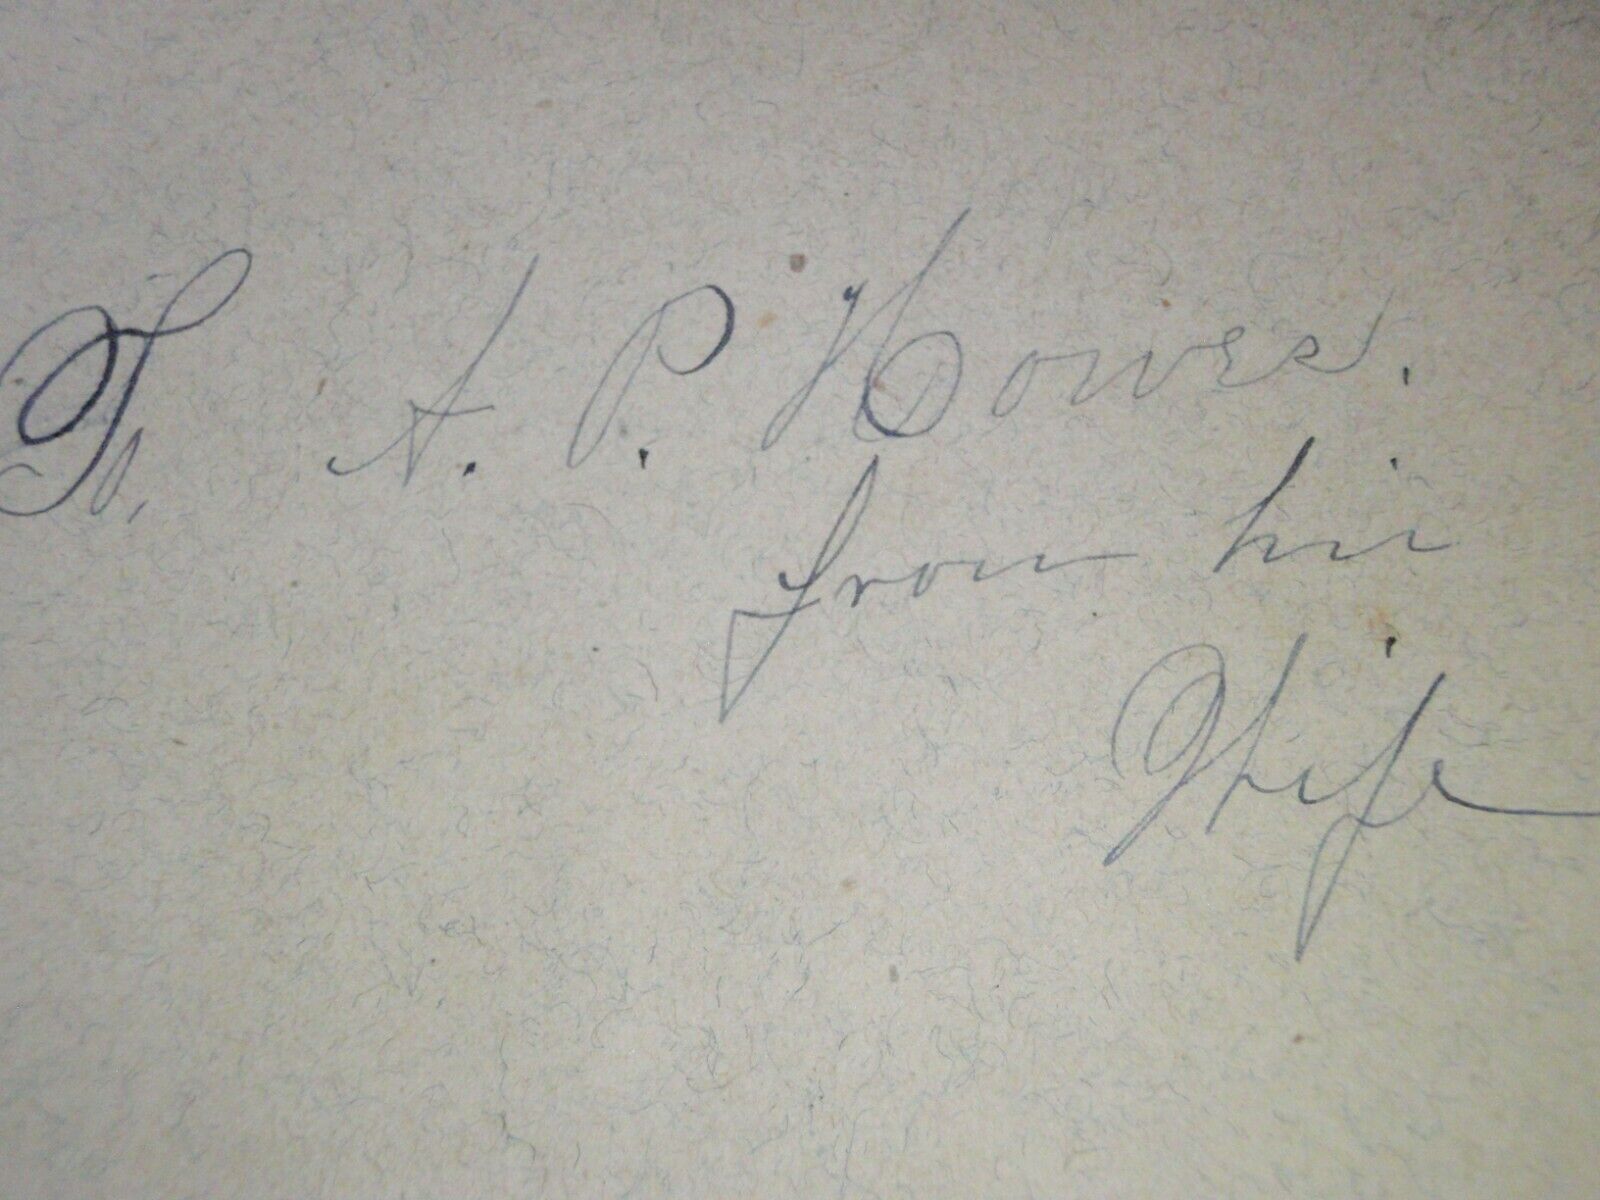 To, A. P. Howes.
from his
Wife